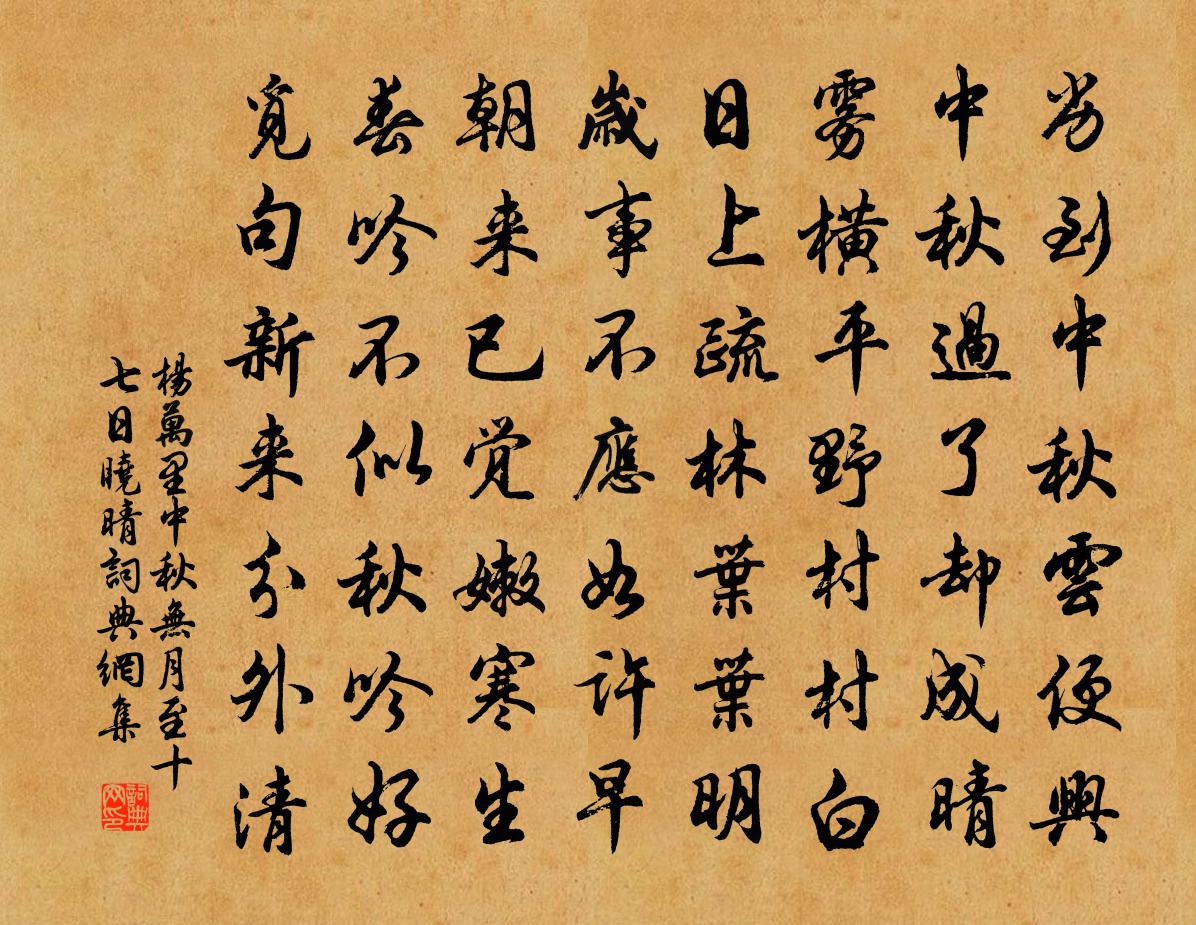 劣到中秋雲便興
中秋過了却成晴
雾橫平野村村白
日上疏林葉葉明
歲事不應如許早
朝来已觉嫩寒生
春吟不似秋吟好
覓句新来分外清
楊萬里中秋無月至十
七日曉晴詞典網集
詞典网印